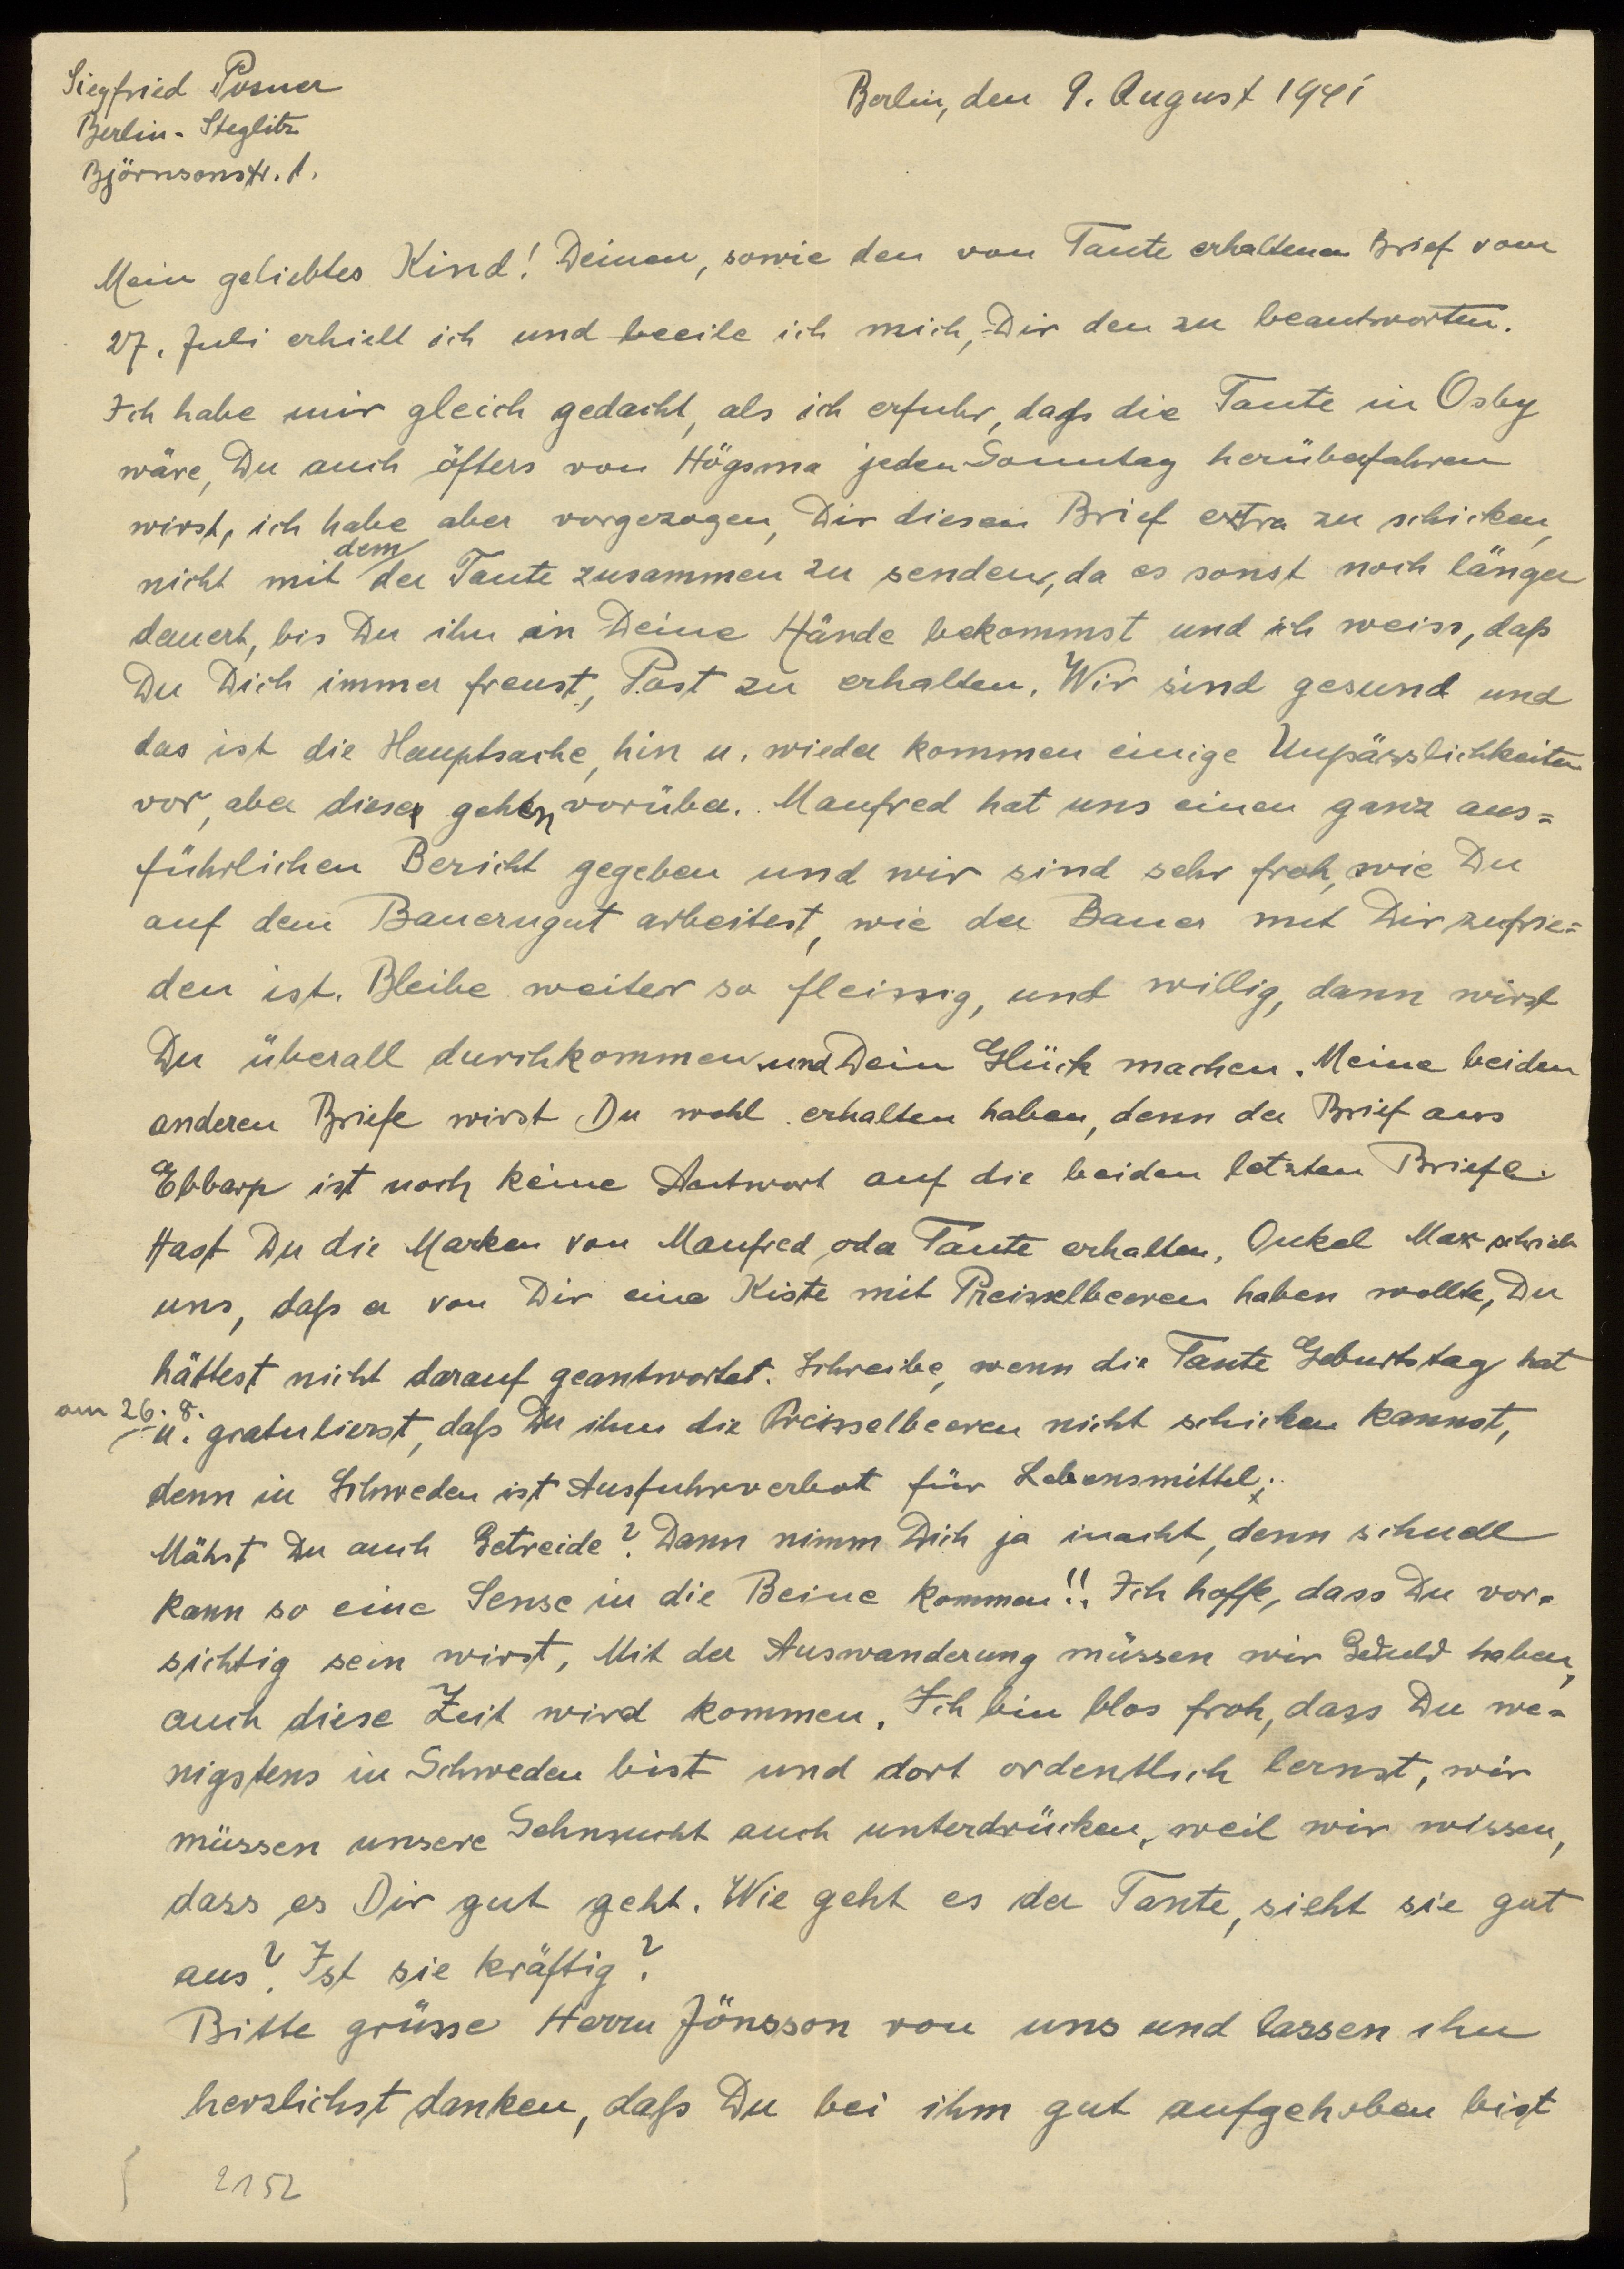 Siegfried Posner
Berlin-Steglitz
Björnsonstr. 1.
Berlin, den 9. August 1941
Mein geliebtes Kind! Deinen, sowie den von Tante erhaltenen Brief vom
27. Juli erhielt ich und beeile ich mich, Dir den zu beantworten.
Ich habe mir gleich gedacht, als ich erfuhr, daß die Tante in Osby
wäre, Du auch öfters von Högsma jeden Sonntag herüberfahren
wirst, ich habe aber vorgezogen, Dir diesen Brief extra zu schicken,
dem
nicht mit der Tante zusammen zu senden, da es sonst noch länger
dauert, bis Du ihn in Deine Hände bekommst und ich weiss, daß
Du Dich immer freust, Post zu erhalten. Wir sind gesund und
das ist die Hauptsache, hin u. wieder kommen einige Unpässlichkeiten
vor, aber diese gehen vorüber. Manfred hat uns einen ganz aus=
führlichen Bericht gegeben und wir sind sehr froh, wie Du
auf dem Bauerngut arbeitest, wie der Bauer mit Dir zufrie=
den ist. Bleibe weiter so fleissig, und willig, dann wirst
Du überall durchkommen und Dein Glück machen. Meine beiden
anderen Briefe wirst Du wohl erhalten haben, denn der Brief aus
Ebbarp ist noch keine Antwort auf die beiden letzten Briefe.
Hast Du die Marken von Manfred oder Tante erhalten. Onkel Max schrieb
uns, daß er von Dir eine Kiste mit Preisselbeeren haben wollte, Du
hättest nicht darauf geantwortet. Schreibe, wenn die Tante Geburtstag hat
am 26. 8.
u. gratulierst, daß Du ihm die Preisselbeeren nicht schicken kannst,
denn in Schweden ist Ausfuhrverbot für Lebensmittel.
Mähst Du auch Getreide? Dann nimm Dich ja inacht, denn schnell
kann so eine Sense in die Beine kommen!! Ich hoffe, dass Du vor-
sichtig sein wirst, Mit der Auswanderung müssen wir Geduld haben,
auch diese Zeit wird kommen. Ich bin blos froh, dass Du we-
nigstens in Schweden bist und dort ordentlich lernst, wir
müssen unsere Sehnsucht auch unterdrücken, weil wir wissen,
dass es Dir gut geht. Wie geht es der Tante, sieht sie gut
aus? Ist sie kräftig?
Bitte grüsse Herrn Jönsson von uns und lassen ihn
herzlichst danken, daß Du bei ihm gut aufgehoben bist
2152